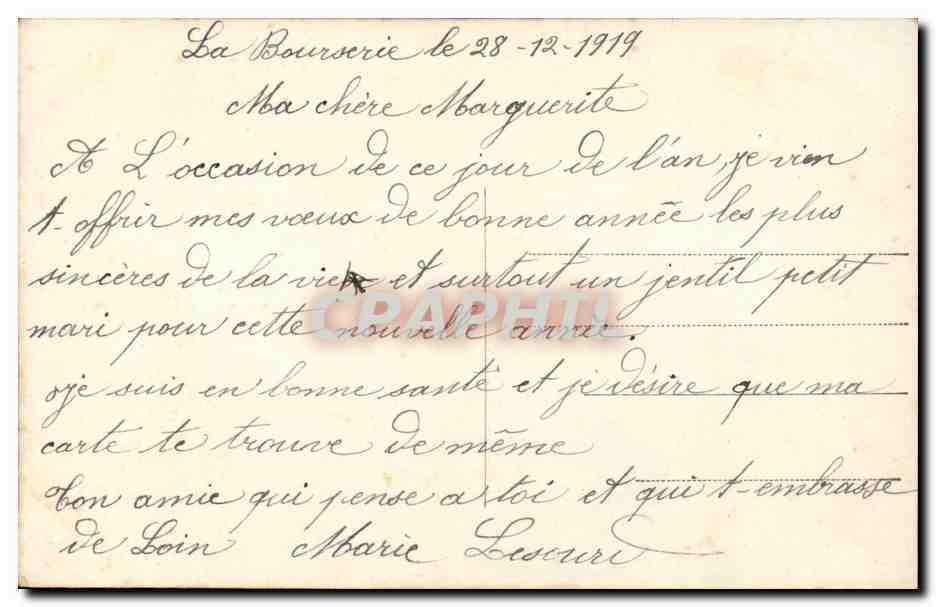 La Bourserie le 28-12-1919
Ma chère Marguerite
A L'occasion de ce jour de l'an, je vien
t-offrir mes vœux de bonne année les plus
sincères de la vie et surtout un jentil petit
mari pour cette nouvelle année.
je suis en bonne santé et je désire que ma
carte te trouve de même
Ton amie qui pense a toi et qui t-embrasse
de Loin Marie
CRAPHTIL